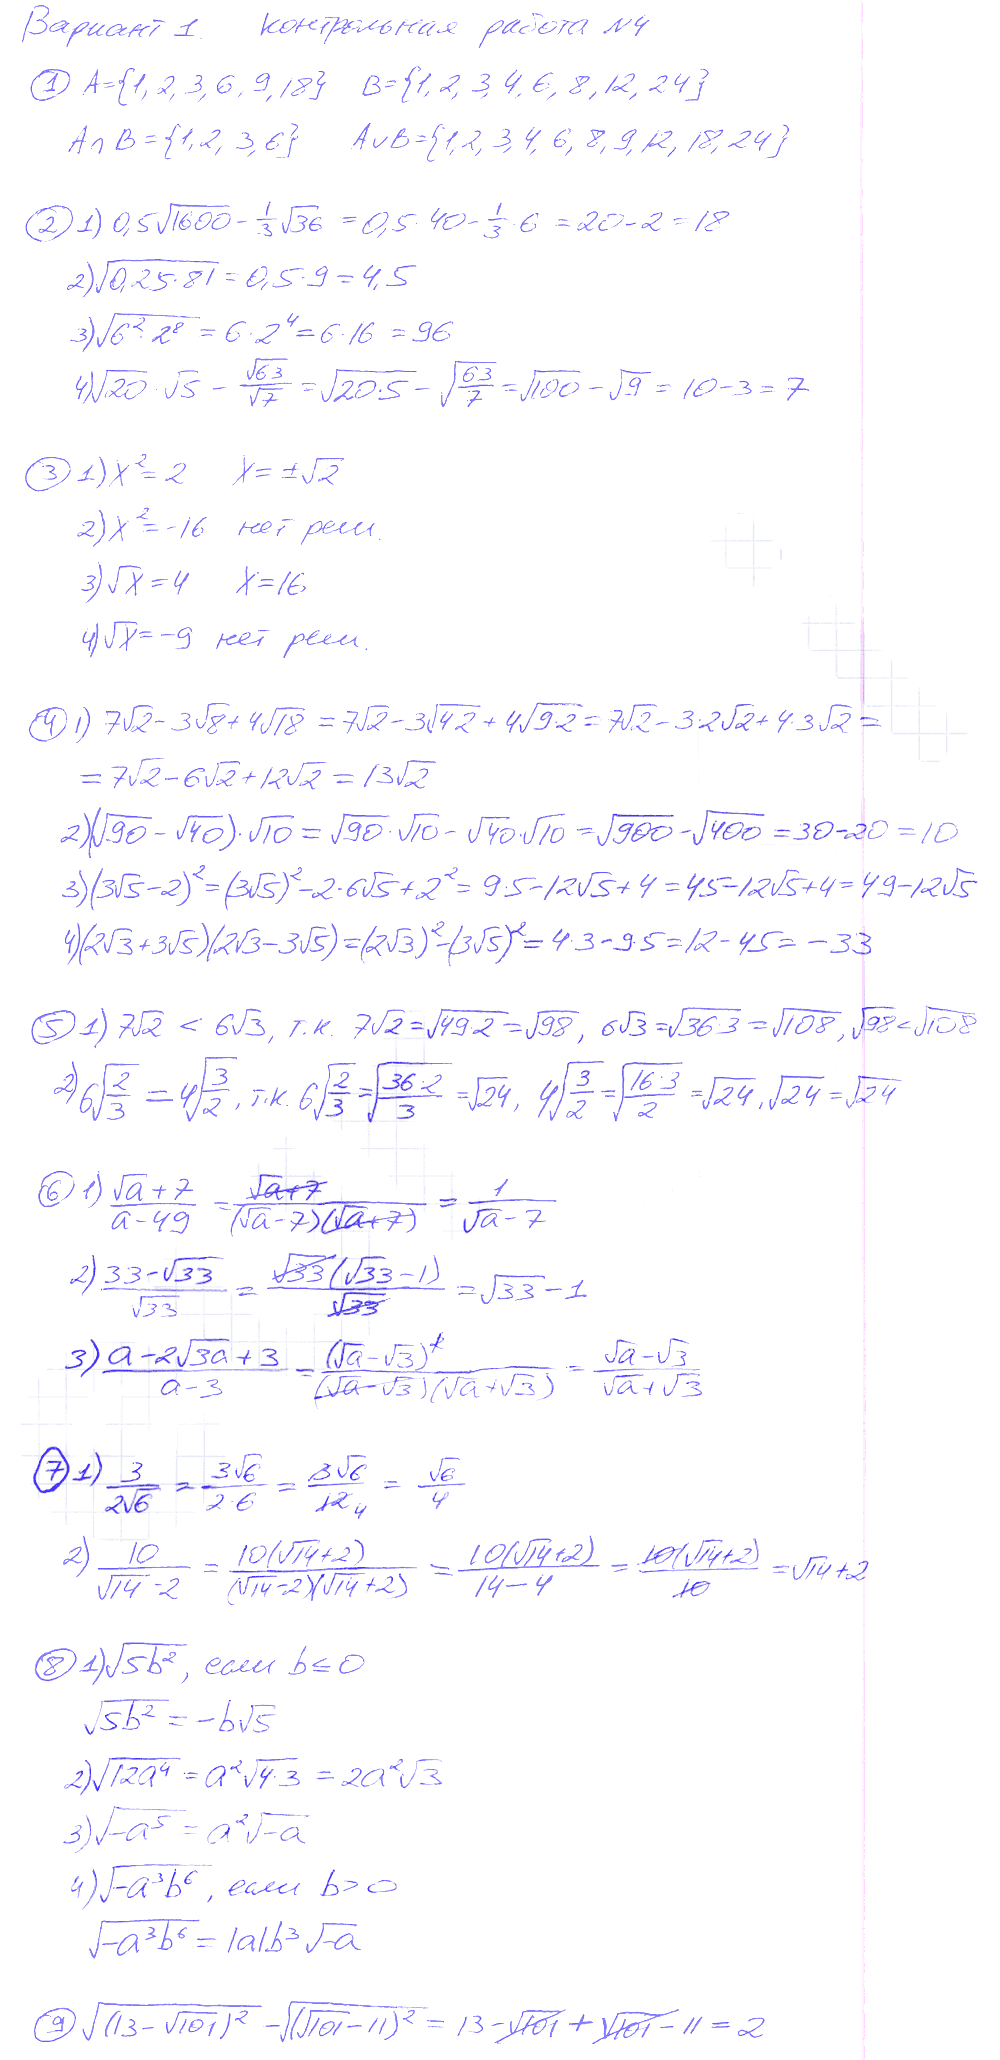 Вариант 1. Контрольная работа №4
① A={1, 2, 3, 6, 9, 18} B={1, 2, 3, 4, 6, 8, 12, 24}
A∩B={1, 2, 3, 6} A∪B={1, 2, 3, 4, 6, 8, 9, 12, 18, 24}
② 1) 0,5√1600 - 1/3 √36 = 0,5·40 - 1/3·6 = 20-2 = 18
2) √(0,25·81) = 0,5·9 = 4,5
3) √(6²·2⁸) = 6·2⁴ = 6·16 = 96
4) √20·√5 - √63/√7 = √(20·5) - √(63/7) = √100 - √9 = 10-3 = 7
③ 1) x²=2 x=±√2
2) x²=-16 нет реш.
3) √x=4 x=16
4) √x=-9 нет реш.
④ 1) 7√2-3√8+4√18 = 7√2-3√(4·2)+4√(9·2) = 7√2-3·2√2+4·3√2 =
= 7√2-6√2+12√2 = 13√2
2) (√90-√40)·√10 = √90·√10-√40·√10 = √900-√400 = 30-20 = 10
3) (3√5-2)² = (3√5)²-2·6√5+2² = 9·5-12√5+4 = 45-12√5+4 = 49-12√5
4) (2√3+3√5)(2√3-3√5) = (2√3)²-(3√5)² = 4·3-9·5 = 12-45 = -33
⑤ 1) 7√2 < 6√3, т.к. 7√2=√(49·2)=√98, 6√3=√(36·3)=√108, √98<√108
2) 6√(2/3) = 4√(3/2), т.к. 6√(2/3)=√(36·2/3)=√24, 4√(3/2)=√(16·3/2)=√24, √24=√24
⑥ 1) (√a+7)/(a-49) = (√a+7)/((√a-7)(√a+7)) = 1/(√a-7)
2) (33-√33)/√33 = (√33(√33-1))/√33 = √33-1
3) (a-2√(3a)+3)/(a-3) = (√a-√3)²/((√a-√3)(√a+√3)) = (√a-√3)/(√a+√3)
⑦ 1) 3/(2√6) = 3√6/(2·6) = 3√6/12 4 = √6/4
2) 10/(√14-2) = 10(√14+2)/((√14-2)(√14+2)) = 10(√14+2)/(14-4) = 10(√14+2)/10 = √14+2
⑧ 1) √(5b²), если b≤0
√(5b²) = -b√5
2) √(12a⁴) = a²√(4·3) = 2a²√3
3) √(-a⁵) = a²√(-a)
4) √(-a³b⁶), если b>0
√(-a³b⁶) = |a|b³√(-a)
⑨ √((13-√101)²) - √((√101-11)²) = 13-√101+√101-11 = 2